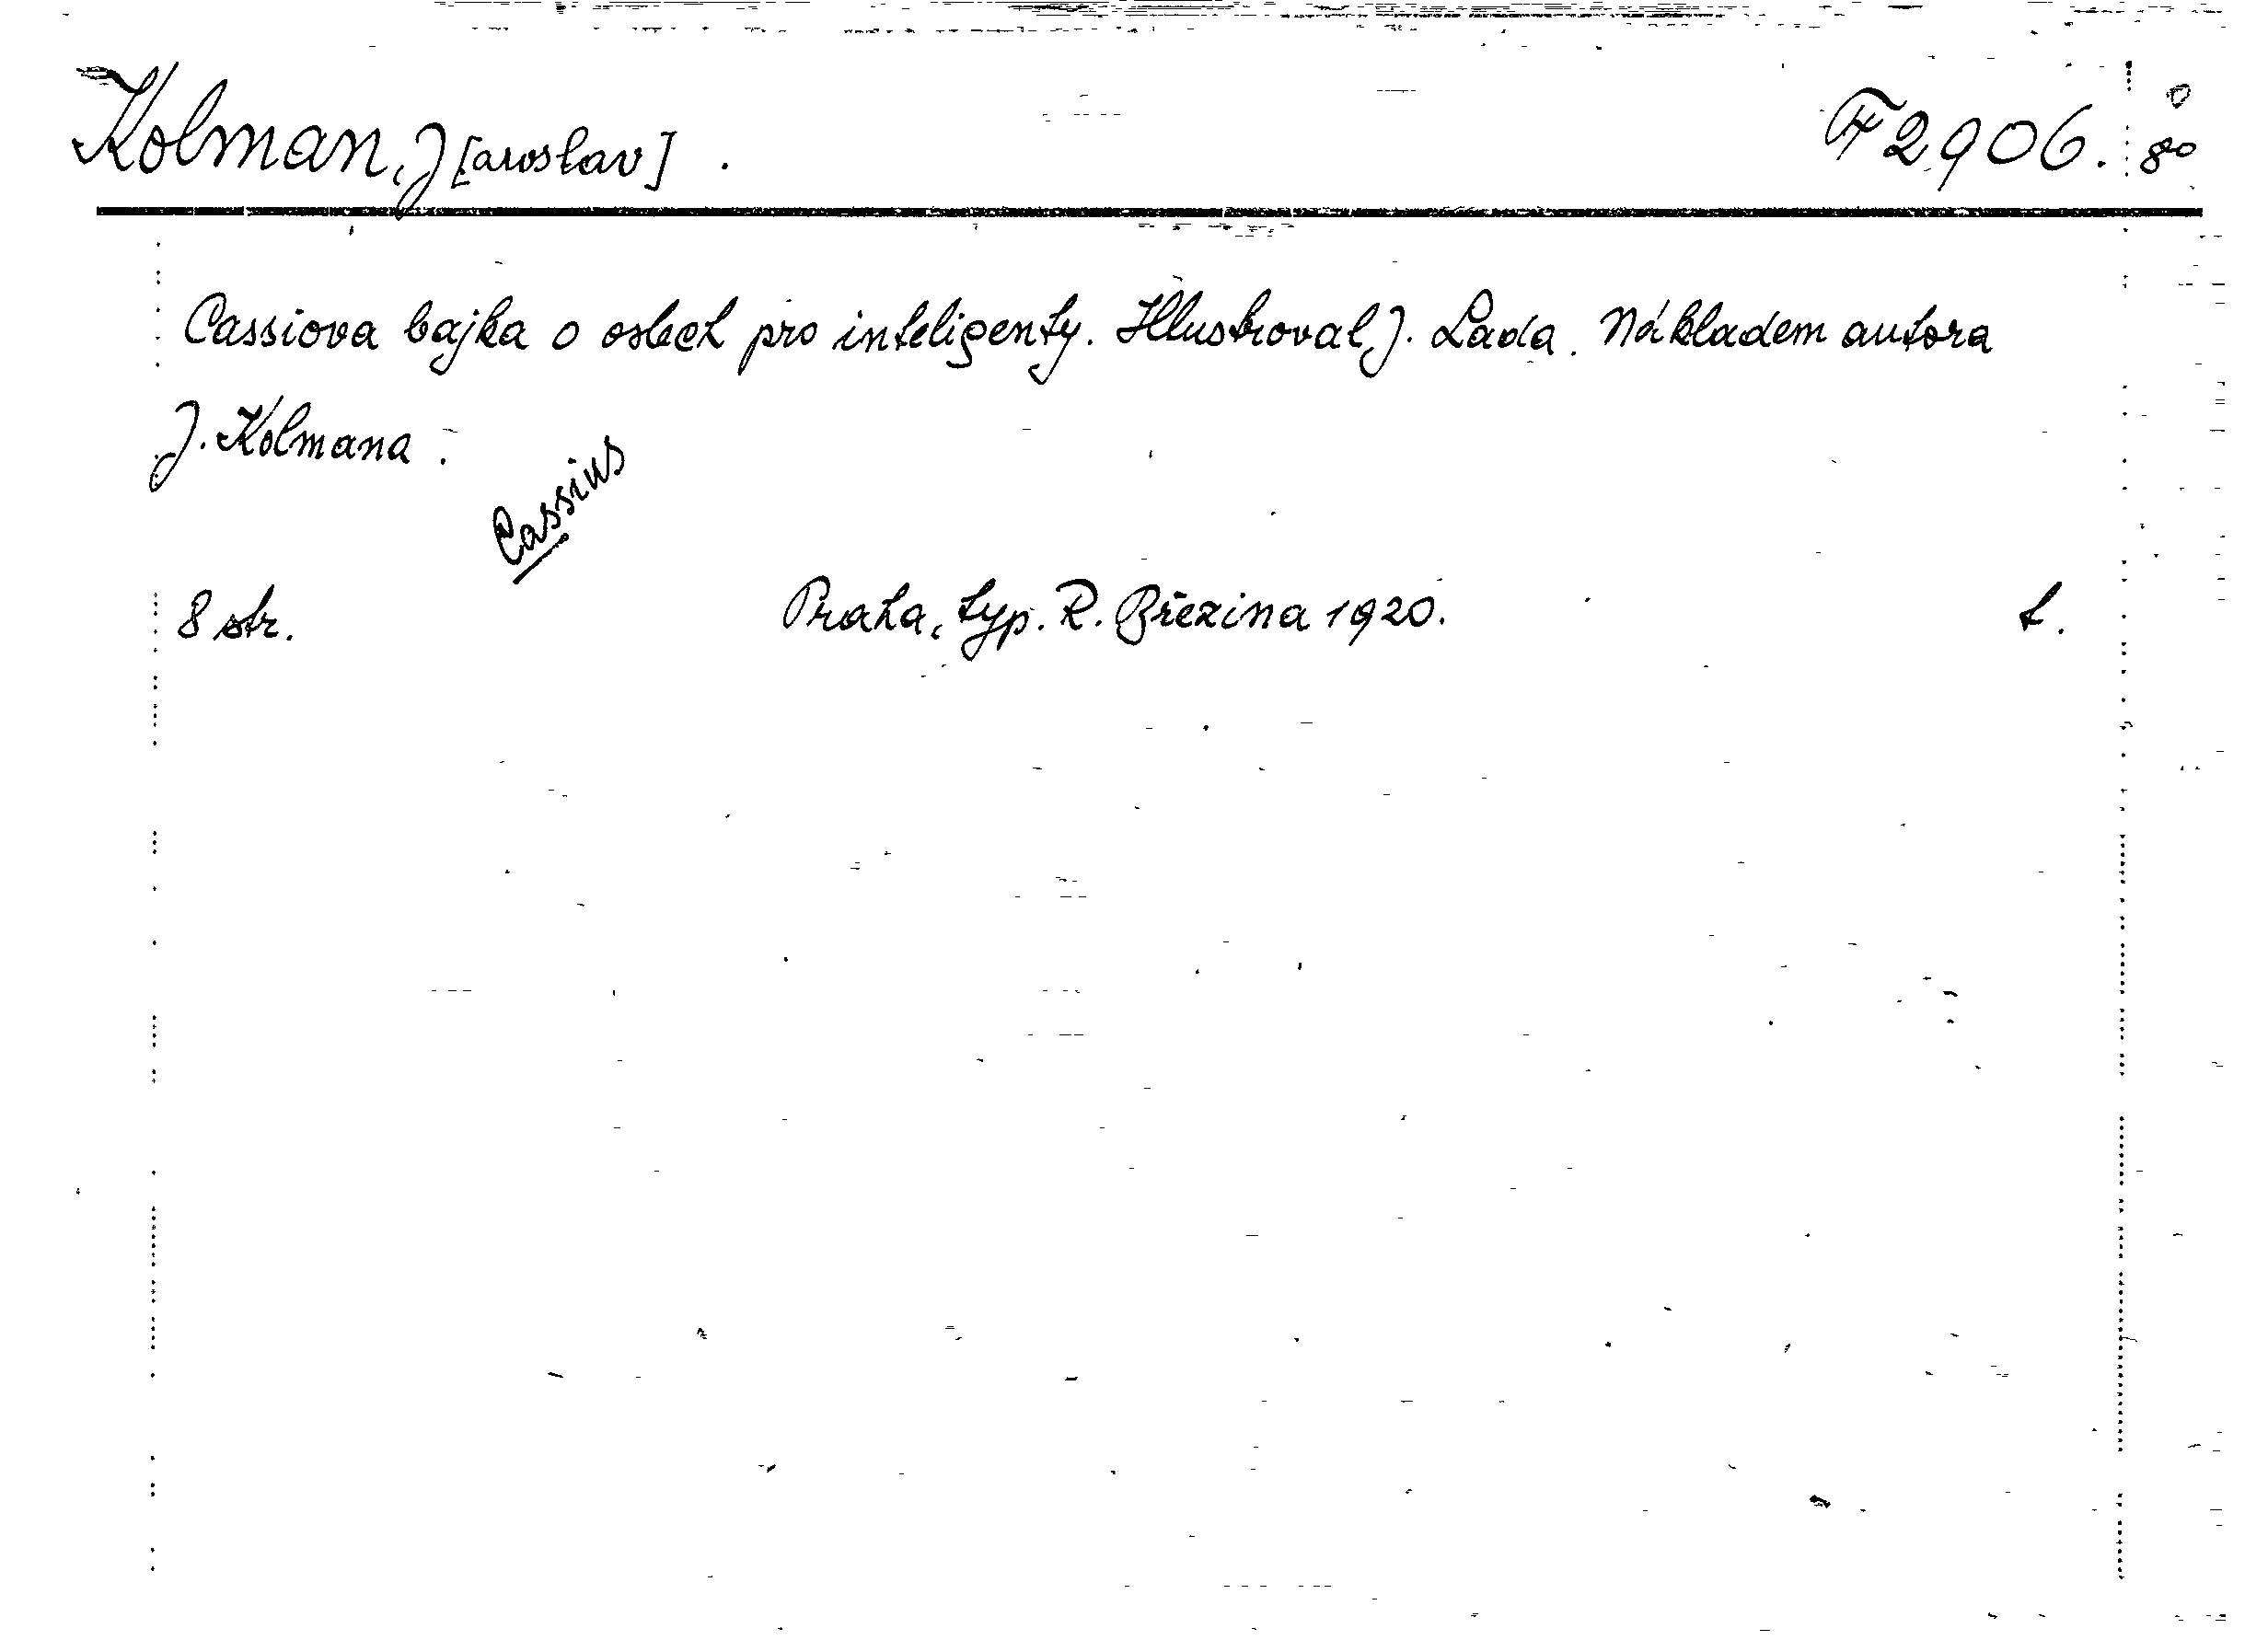 Kolman, J[aroslav]. F 2906. 8°
Cassiova bajka o oslech pro inteligenty. Illustroval J. Lada. Nákladem autora
J. Kolmana.
Cassius
8 str. Praha, typ. R. Březina 1920. t.